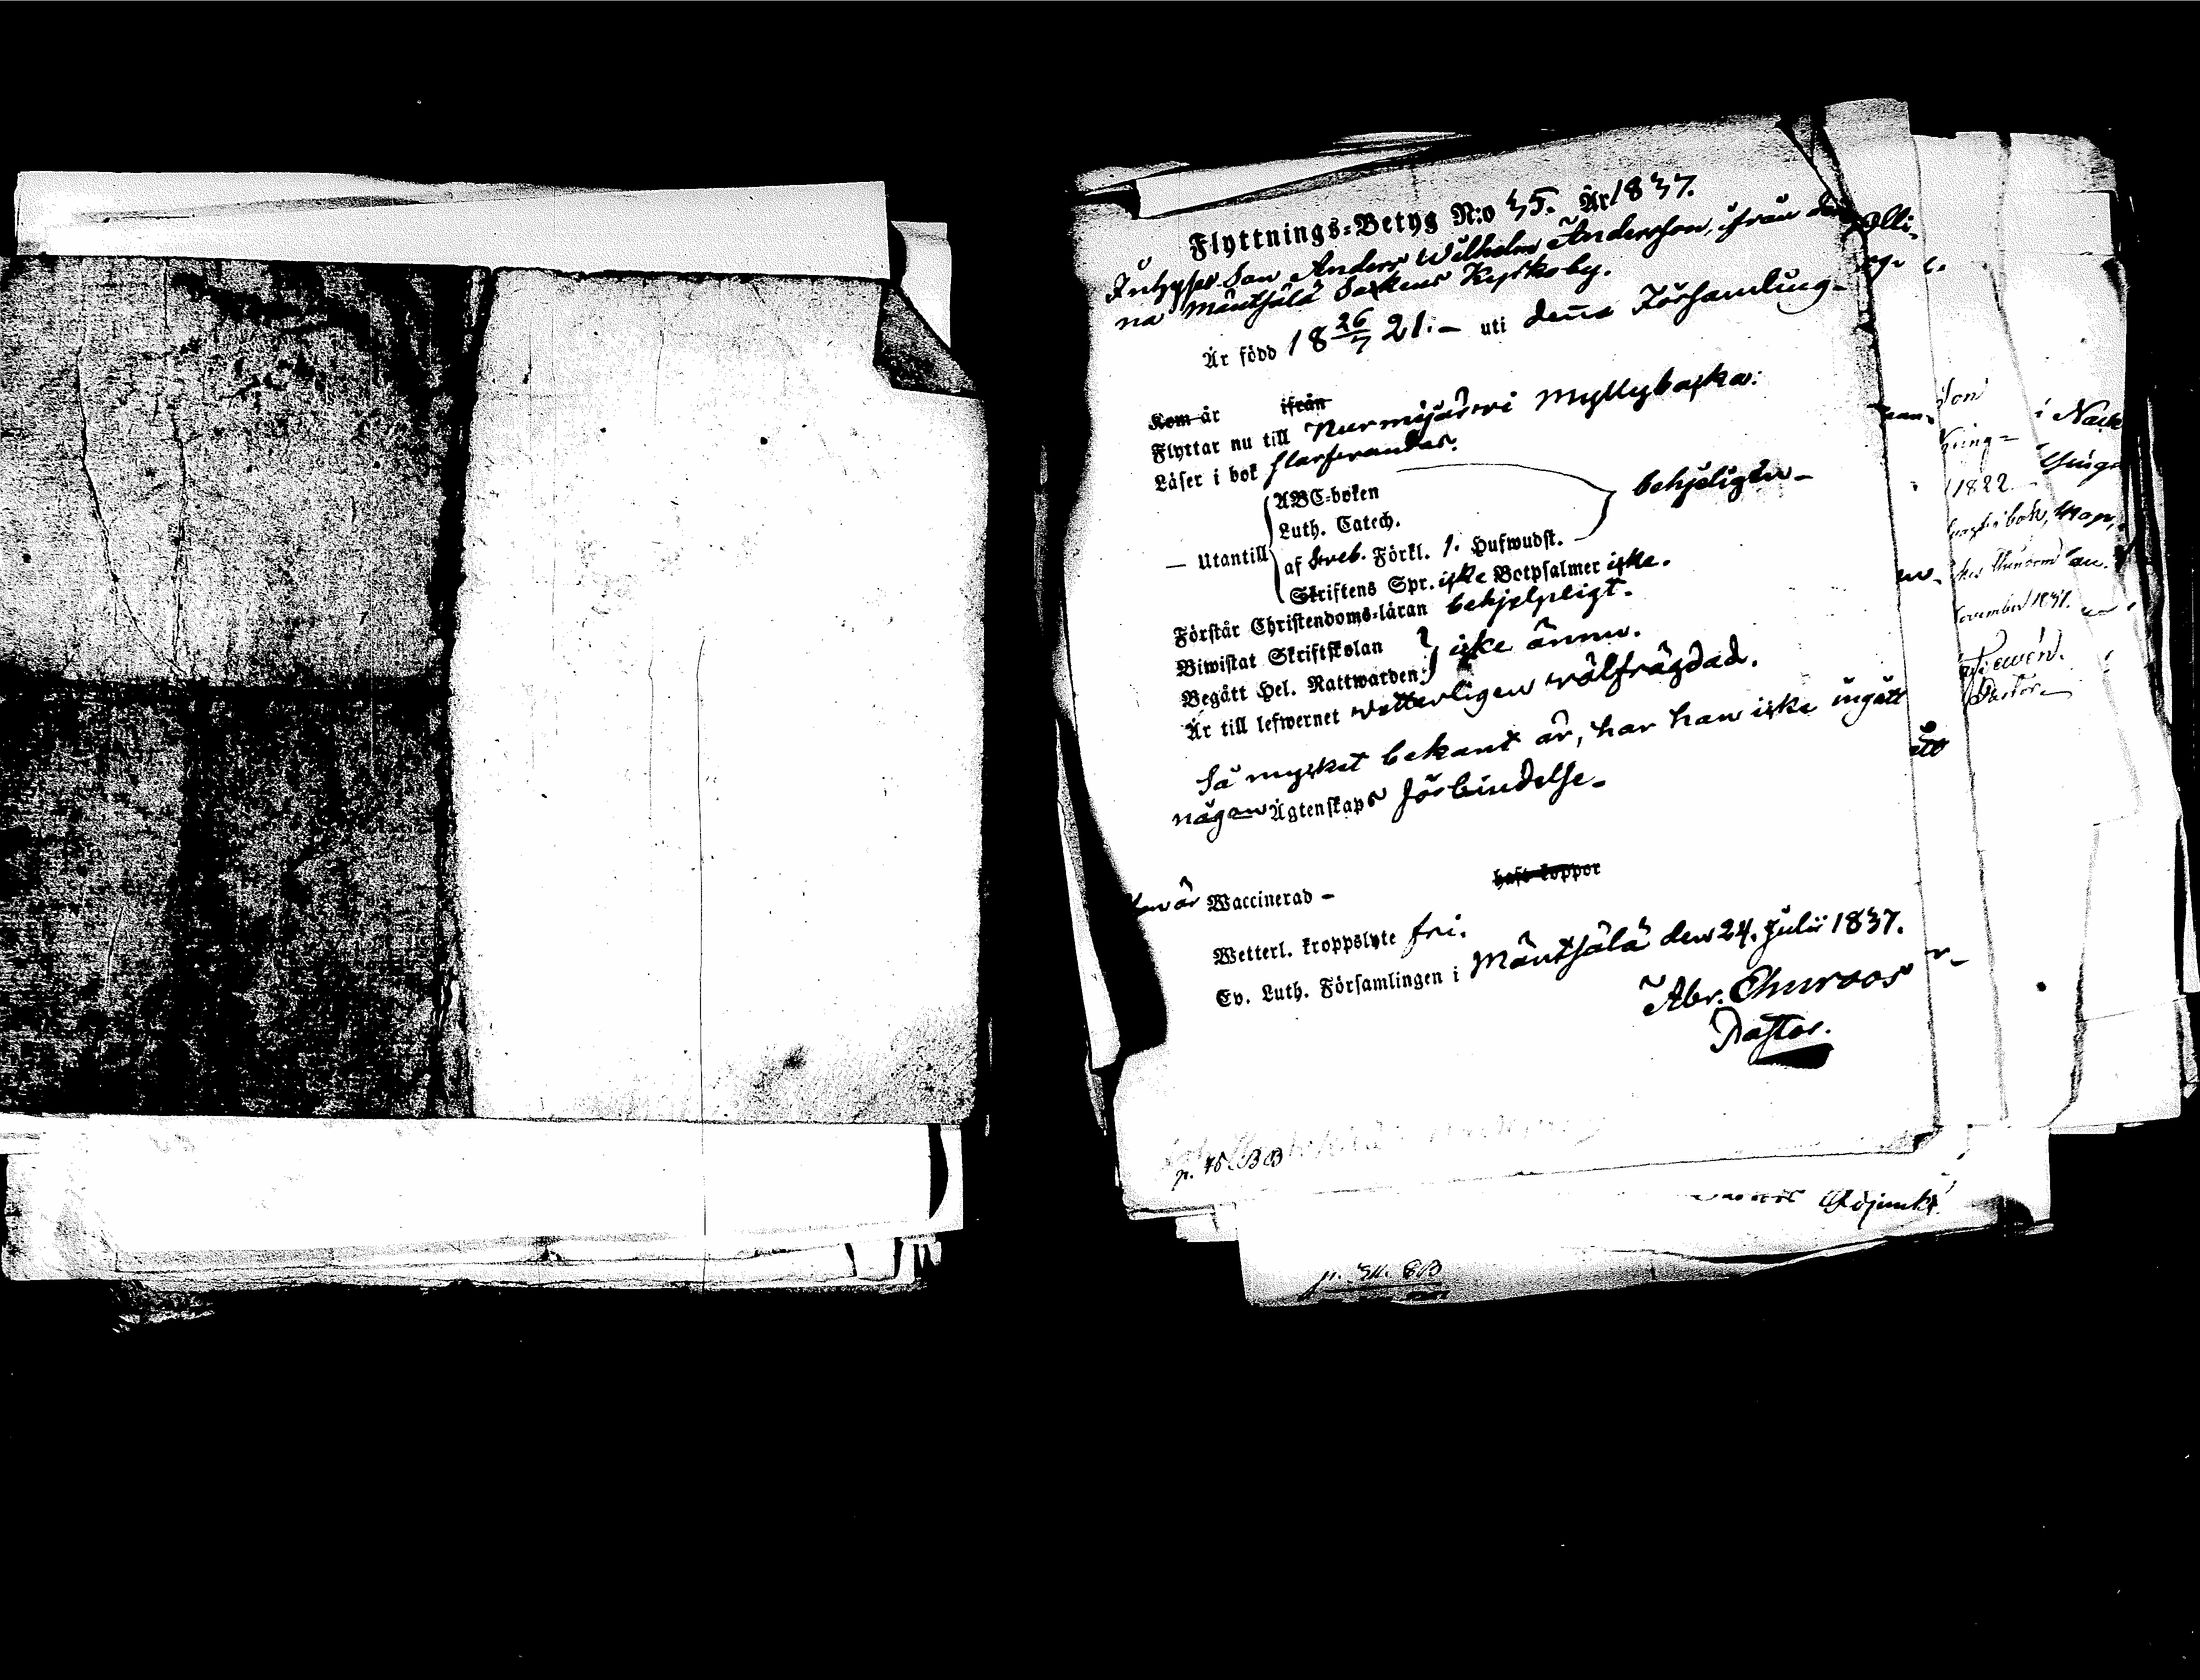 Flyttnings-Betyg N:o 35. År 1837.
Inhyses Son Anders Wilhelm Andersson, ifrån den-
na Mäntsälä Sockens Kyrkoby.
Är född 18 26/7 21. – uti denna Församling-
Kom år ifrån
Flyttar nu till Nurmijärvi Myllykoska.
Läser i bok
ABC-boken
Luth. Catech. behjeligen –
— Utantill af Sveb. Förkl. 1. Hufwudst. –
Skriftens Spr. icke Botpsalmer icke.
Förstår Christendoms-läran behjelpligt.
Biwistat Skriftskolan
Begått Hel. Nattwarden icke ännu.
Är till lefwernet vetterligen välfrägdad.
Så mycket bekant är, har han icke ingått
någon Ägtenskaps förbindelse –
är Waccinerad – haft koppor
Wetterl. kroppslyte fri.
Ev. Luth. Församlingen i Mäntsälä den 24. Julii 1837.
Abr.
Pastor.
p. 75 BB
i Nack
1822
Pastor